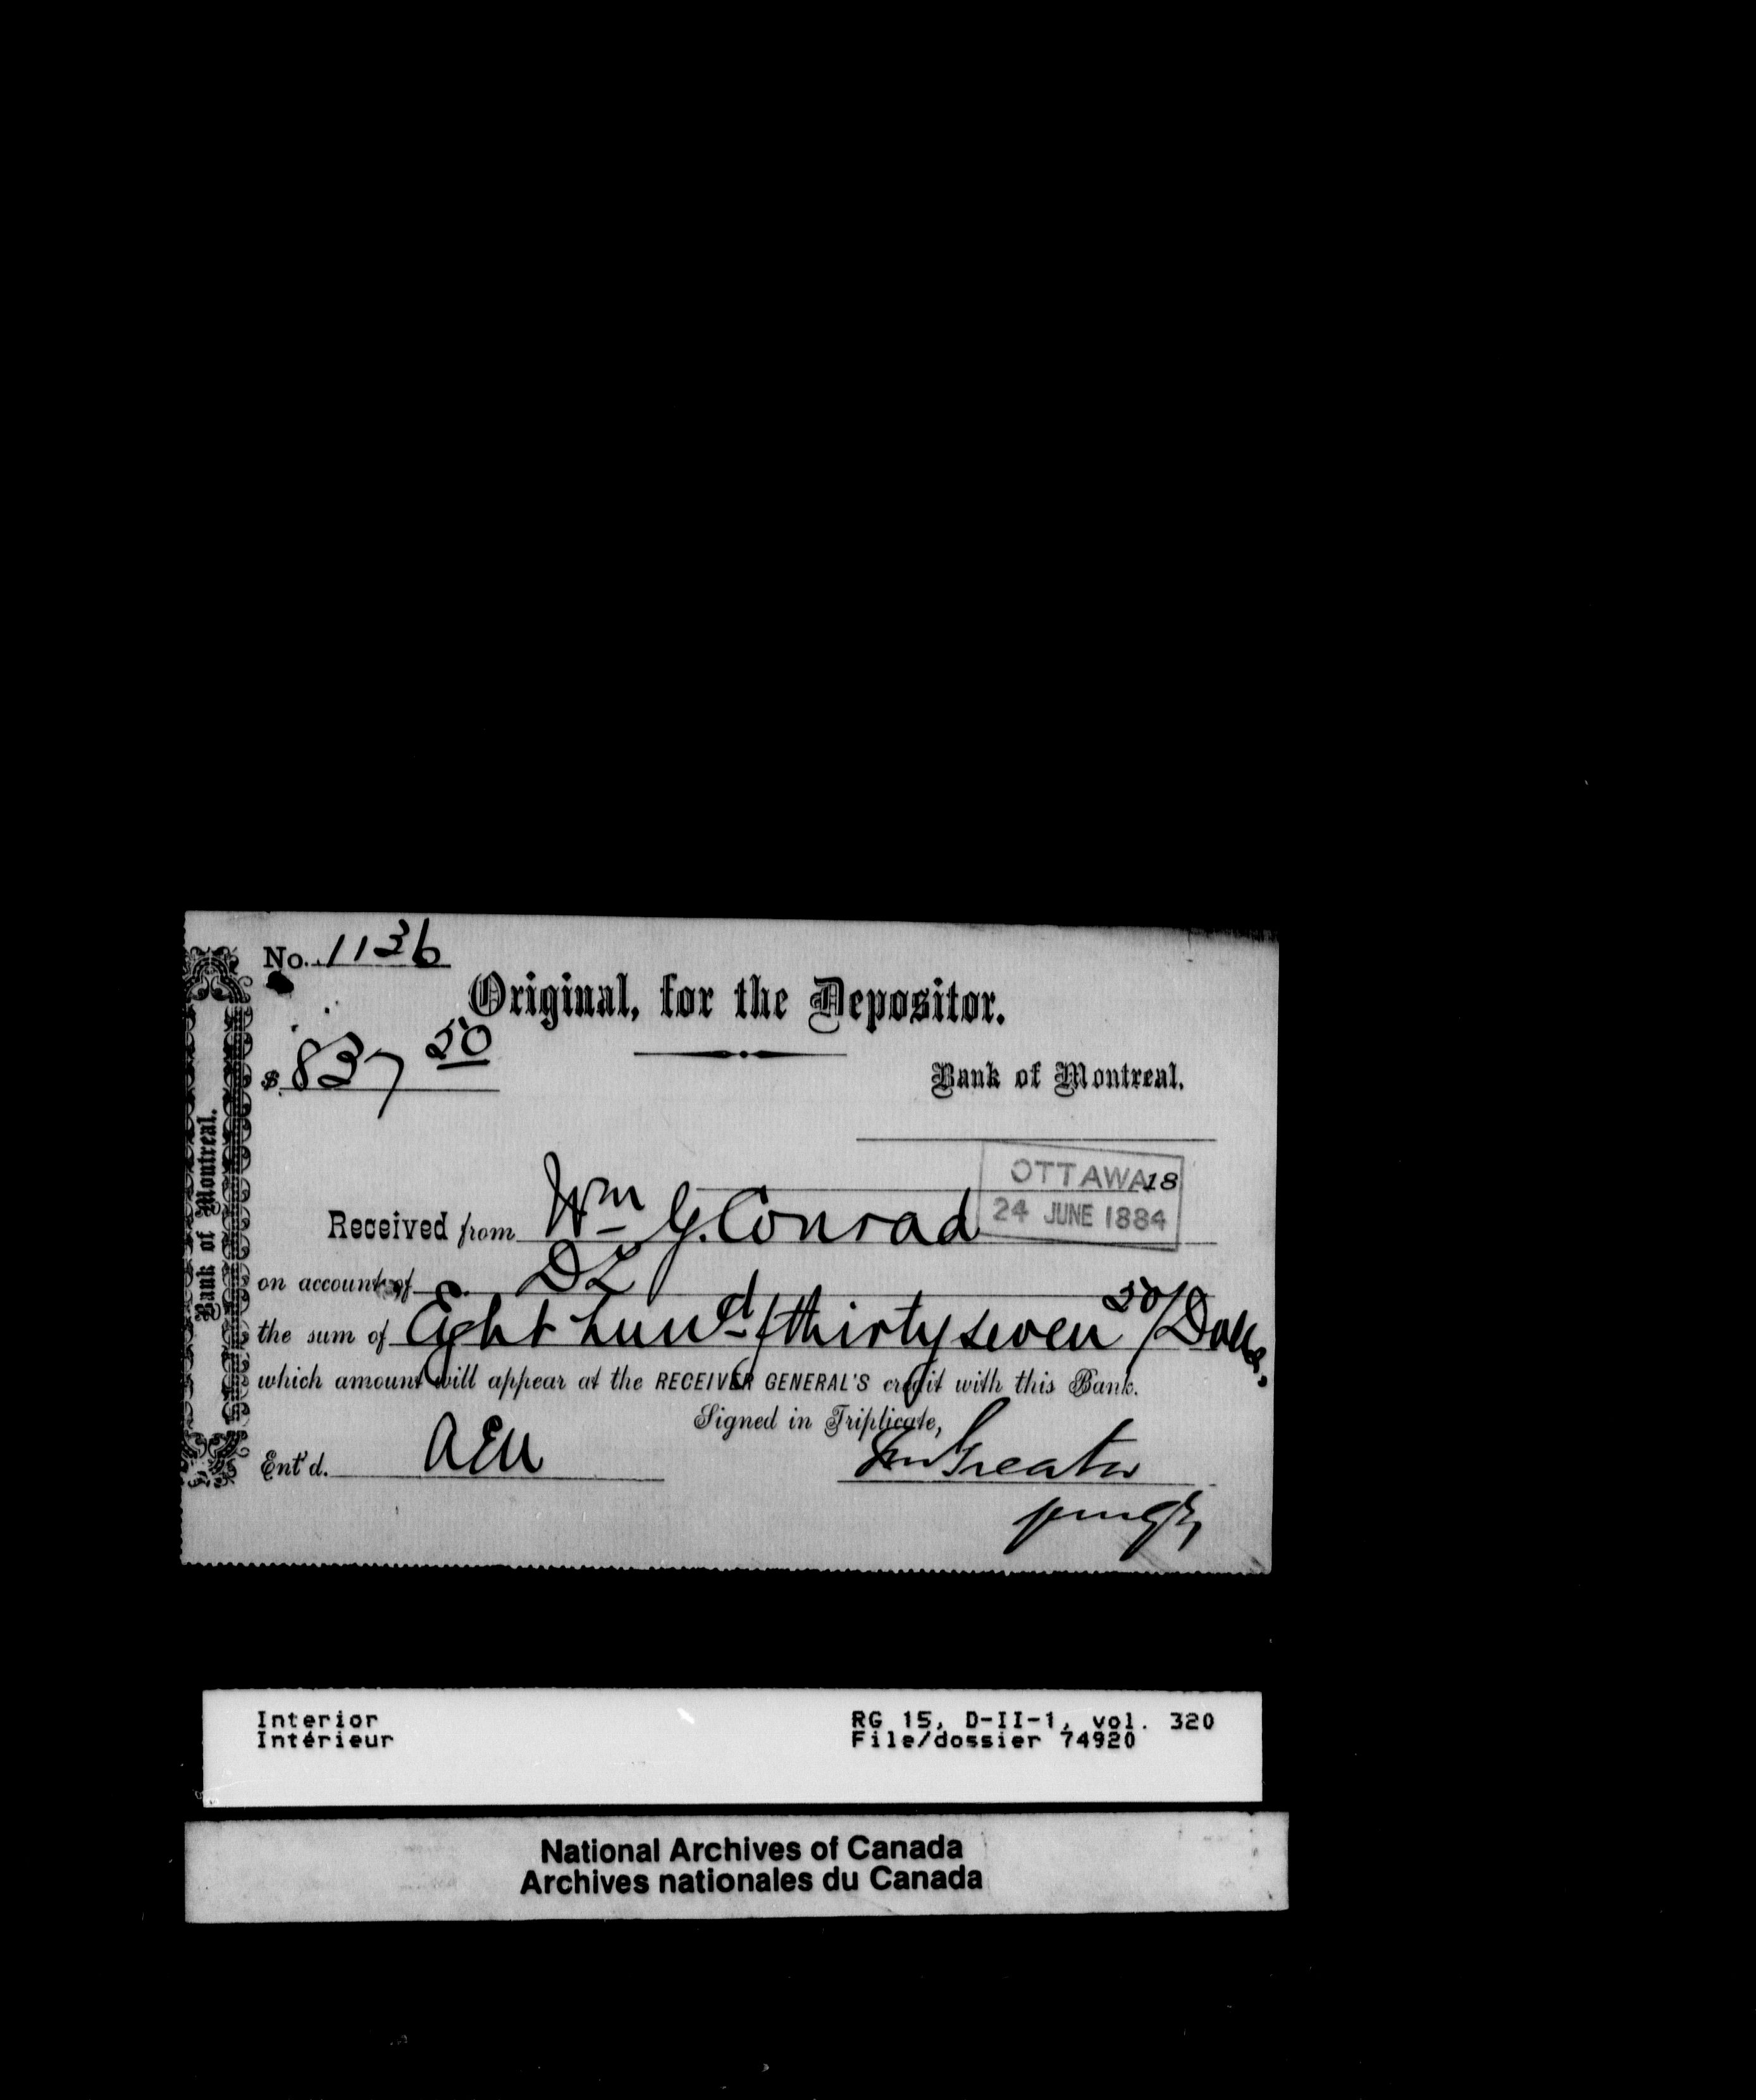 No. 1136
Original, for the Depositor.
$ 837 50
Bank of Montreal.
Bank of Montreal.
OTTAWA 18
24 JUNE 1884
Received from Wm G. Conrad
on account of DL
the sum of Eight hund thirty seven 50/ Dolls,
which amount will appear at the RECEIVER GENERAL'S credit with this Bank.
Signed in Triplicate,
Ent'd.
Interior
Intérieur
RG 15, D-II-1, vol. 320
File/dossier 74920
National Archives of Canada
Archives nationales du Canada